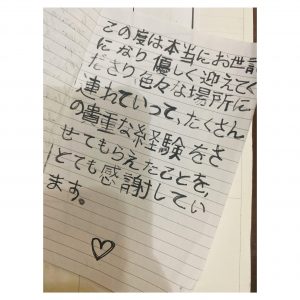 この度は本当にお世話
になり優しく迎えてく
ださり色々な場所に
連れていって、たくさん
の貴重な経験をさ
せてもらえたことを、
とても感謝してい
ます。
♡